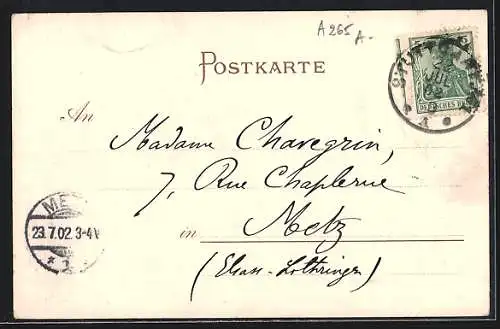 A265
A.
POSTKARTE
5
STUTTGART
JUL
02
DEUTSCHES REICH
1
An
Madame Chavegrin,
7, Rue Chaplerue
in Metz
(Elsass-Lothringen)
METZ
23.7.02.3-4N
* 2